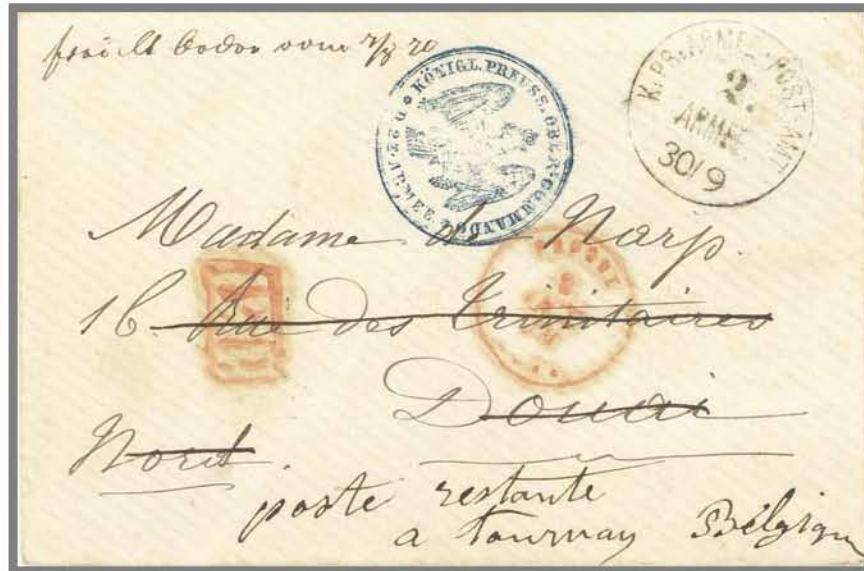 vom 7/8 70
KÖNIGL. PREUSS. OBER-COMMANDO D. 2T. ARMEE
K. PR. ARMEE-POST-AMT
2.
ARMEE
30/9
Madame de Narp.
16. Rue des Trinitaires
Douai
Nord.
poste restante
a Tournay Bélgique